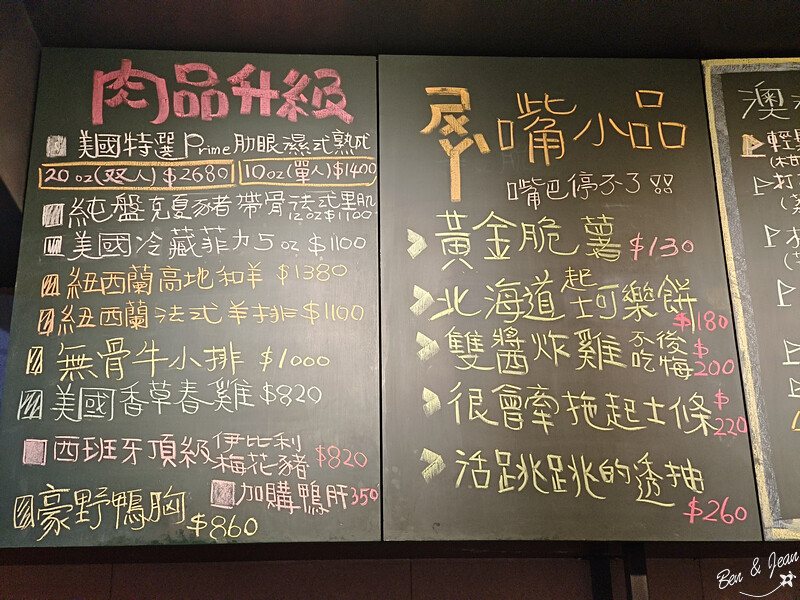 肉品升級
美國特選Prime肋眼濕式熟成
20oz(双人)$2680 10oz(單人)$1400
純盤克夏豬帶骨法式里肌
12oz $1100
美國冷藏菲力5oz $1100
紐西蘭高地和羊 $1380
紐西蘭法式羊排 $1100
無骨牛小排 $1000
美國香草春雞 $820
西班牙頂級伊比利
梅花豬 $820
加購鴨肝350
豪野鴨胸
$860
嘴小品
嘴巴停不了!!
黃金脆薯 $130
北海道起士可樂餅
$180
雙醬炸雞 不吃後悔
$200
很會牽拖起士條
$220
活跳跳的透抽
$260
澳
Ben & Jean